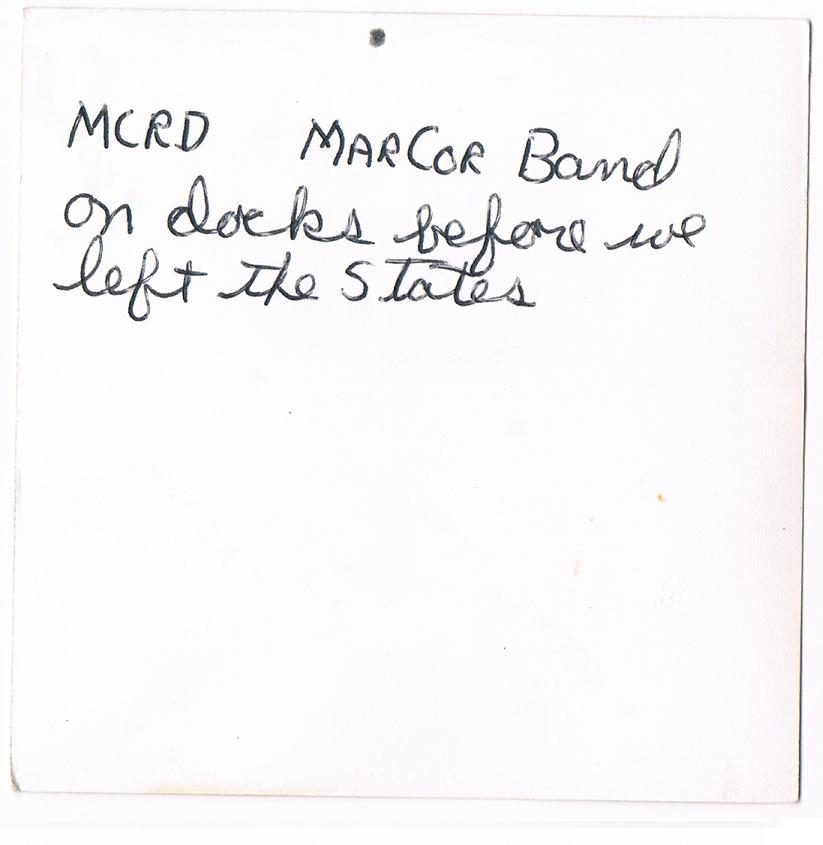 MCRD MARCOR Band
on docks before we
left the States